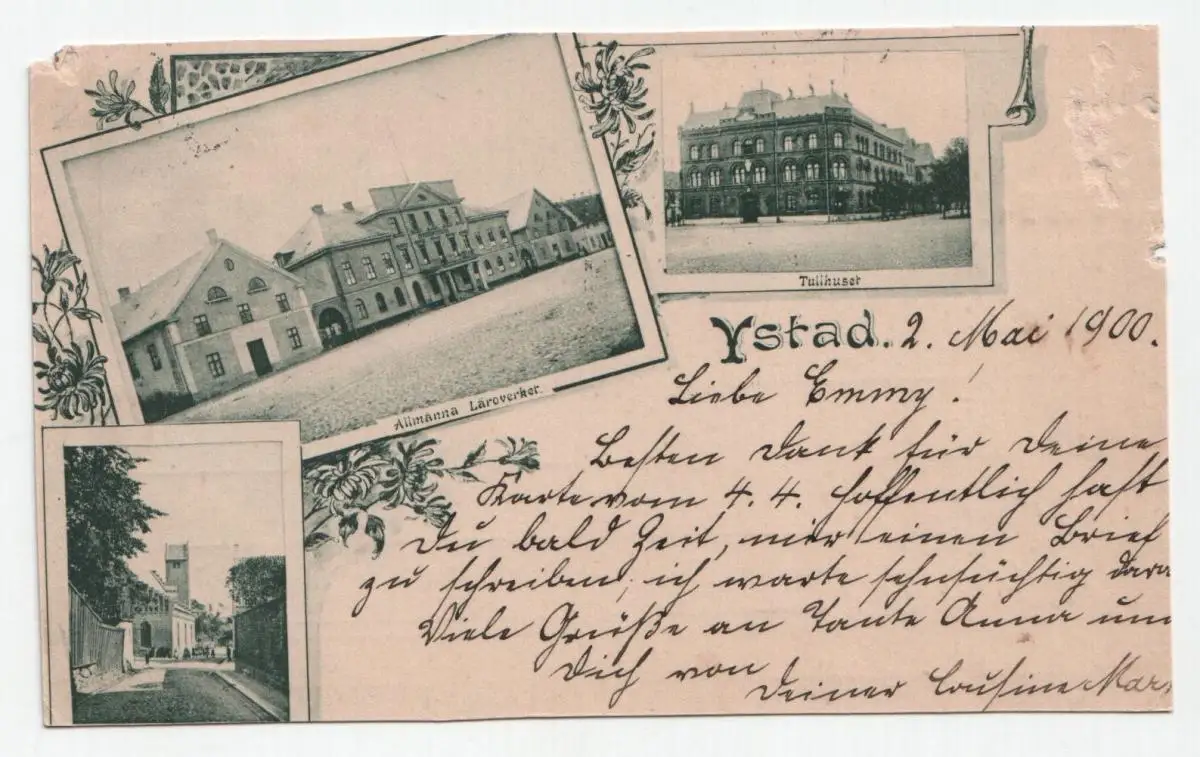 Tullhuset
Allmänna Läroverket.
Ystad. 2. Mai 1900.
Liebe Emmy!
Besten Dank für Deine
Karte vom 4. 4. Hoffentlich hast
Du bald Zeit, mir einen Brief
zu schreiben, ich warte sehnsüchtig dara
Viele Grüße an Tante Anna un
Dich von
Deiner Cousine Mar